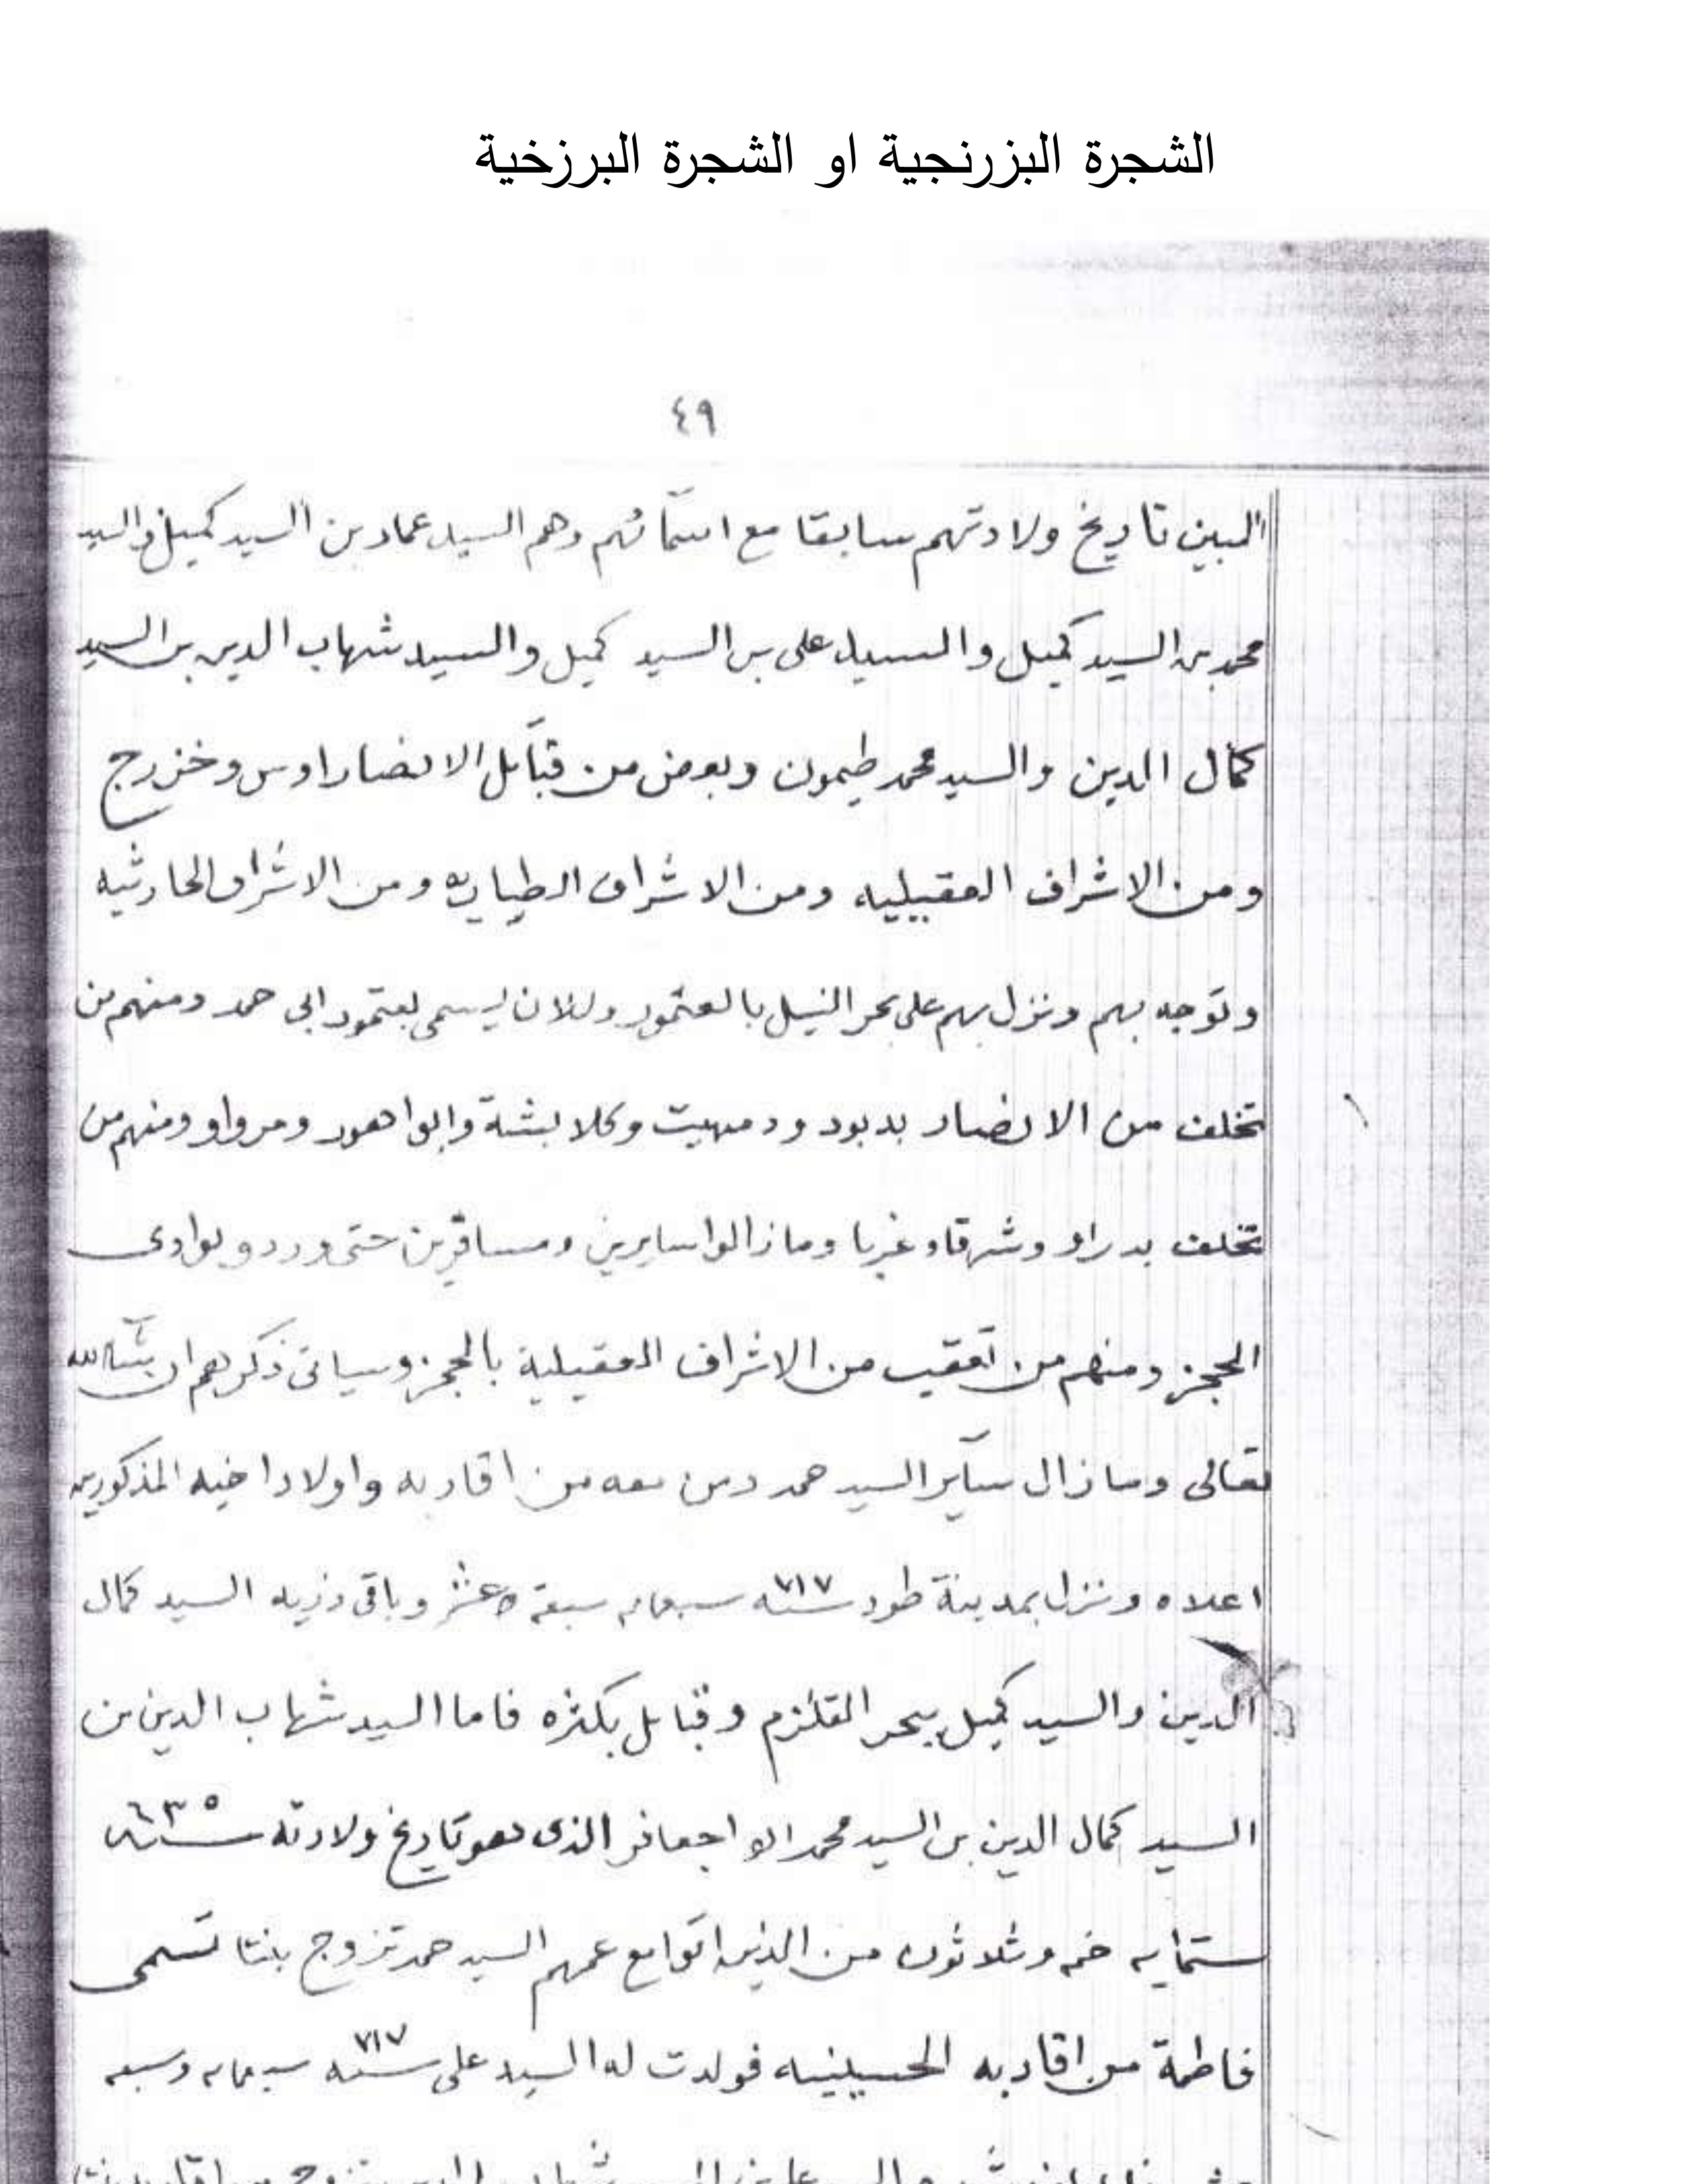 الشجرة البزرنجية او الشجرة البرزخية
٤٩
المبين تاريخ ولادتهم سابقا مع اسمآئهم وهم السيد عماد بن السيد كميل والسيد
محمد بن السيد كميل والسيد على بن السيد كميل والسيد شهاب الدين بن السيد
كمال الدين والسيد محمد طيمون وبعض من قبآئل الانصار اوس وخزرج
ومن الاشراف العقيليه ومن الاشراف الطياريه ومن الاشراف الحارثيه
وتوجه بهم ونزل بهم على بحر النيل بالعتمور وللان يسمى بعتمور ابى حمد ومنهم من
تخلف من الانصار بدبود ودمهيت وكلابشة وابوا هور ومرواو ومنهم من
تخلف بدراو وشرقا وغربا وما زالوا سايرين ومسافرين حتى وردو بوادى
الحجز ومنهم من تعقب من الاشراف العقيلية بالحجز وسياتى ذكرهم ان شآء الله
تعالى وما زال سآير السيد حمد ومن معه من اقاربه واولاد اخيه المذكورين
اعلاه ونزل بمدينة طود سنه ٧١٧ سبعمايه سبعة عشر وباقى ذريه السيد كمال
الدين والسيد كميل ببحر القلزم وقبايل بكثره فاما السيد شهاب الدين بن
السيد كمال الدين بن السيد محمد ابو اجعافر الذى هو تاريخ ولادته سنه ٦٣٥
ستمايه خمسه وثلاثون من الذين اتوا مع عمهم السيد حمد تزوج بنتا تسمى
فاطمة من اقاربه الحسينيه فولدت له السيد على سنه ٧١٧ سبعمايه وسبعه